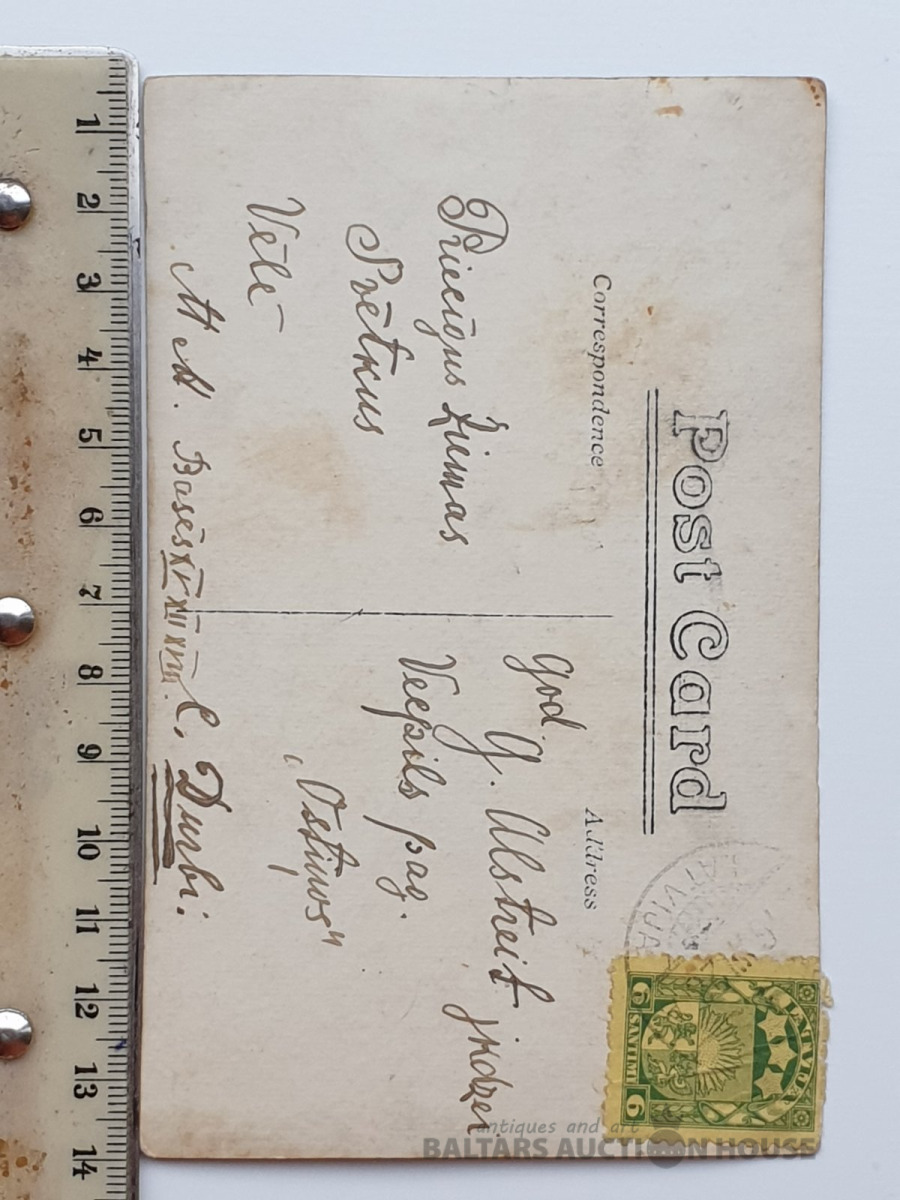 Post Card
Correspondence
Address
Priecīgus Ziemas
Svētkus
Vēlē —
God.
G. Ulstreit jkdzei
Vecpils pag.
„Ostiņos"
C. Durbi.
LATVIJA
6 SANTIMI 6
1
2
3
4
5
6
7
8
9
10
11
12
13
14
antiques and art
BALTARS AUCTION HOUSE